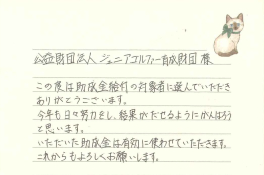 公益財団法人 ジュニアゴルファー育成財団 様
この度は助成金給付の対象者に選んでいただき
ありがとうございます。
今年も日々努力をし、結果がだせるようにがんばろう
と思います。
いただいた助成金は有効に使わせていただきます。
これからもよろしくお願いします。